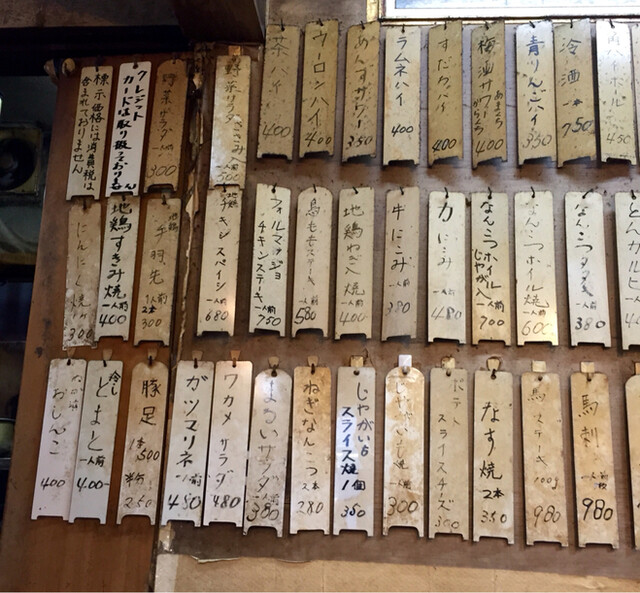 標示価格には消費税は
含まれておりません
クレジット
カードは取り扱っておりません
野菜サラダ 一人前 300
野菜サラダ
500
茶ハイ 400
ウーロンハイ 400
あんずサワー 350
ラムネハイ 400
すだちハイ 400
梅酒サワー
あまくち
からくち
400
青りんごハイ 350
冷酒 一本 750
450
にんにく焼 300
地鶏すきみ焼 一人前 400
地鶏
手羽先 1人前 2本 300
地鶏
チキンスペイシー 一人前 680
フォルマッジョ
チキンステーキ 一人前 750
鳥ももステーキ 一人前 580
地鶏ねぎ入り焼 一人前 400
牛にこみ 一人前 380
カにこみ 一人前 480
なんこつホイル
じゃが入り 一人前 700
なんこつホイル焼 一人前 600
なんこつ 一人前 380
おしんこ 400
冷し
とまと 一人前 400
豚足 1本 500
半分 250
ガツマリネ 一人前 480
ワカメサラダ 480
まるいサラダ 380
ねぎなんこつ 2本 280
じゃがいも
スライス焼 1個 350
300
ポテト
スライスチーズ 300
なす焼 2本 350
馬ステーキ 100g 980
馬刺 一人前 980